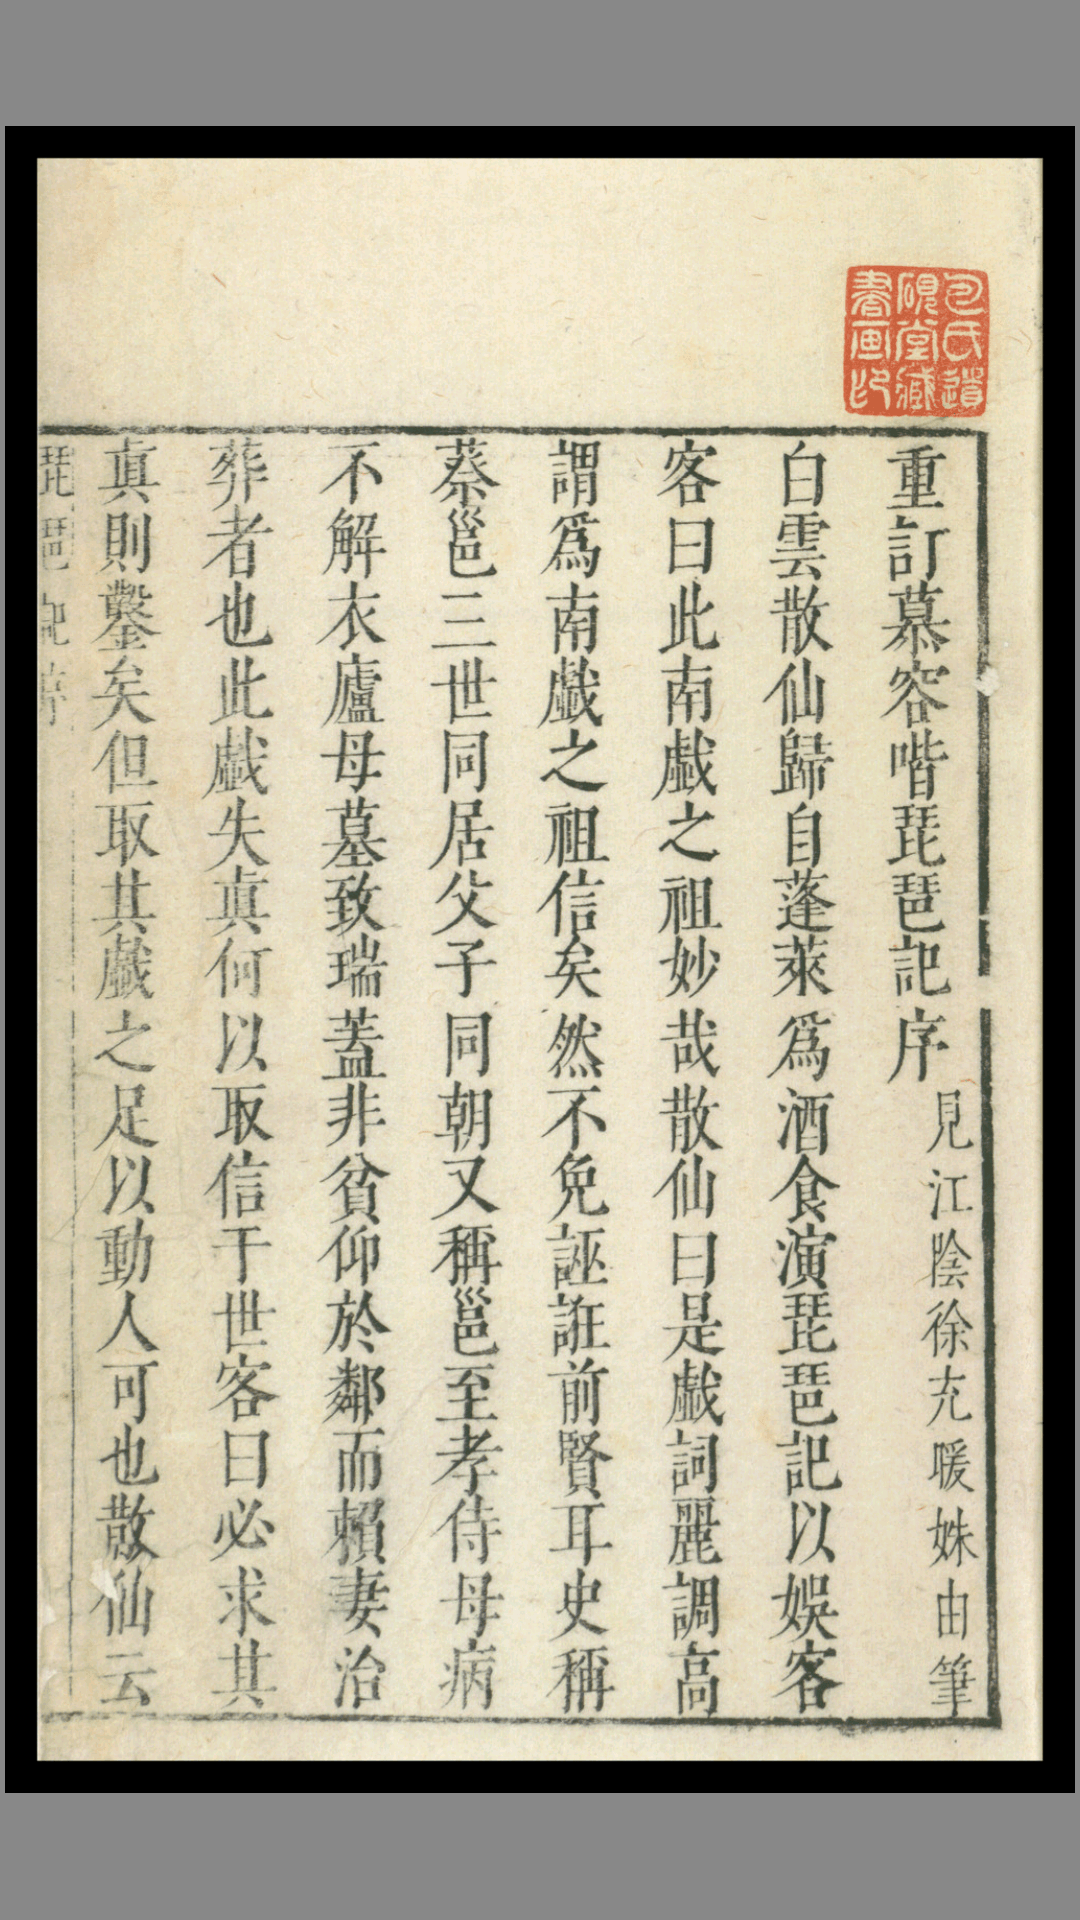 重訂慕容喈琵琶記序
見江陰徐充暖姝由筆
白雲散仙歸自蓬萊爲酒食演琵琶記以娛客
客曰此南戱之祖妙哉散仙曰是戱詞麗調高
謂爲南戱之祖信矣然不免誣誑前賢耳史稱
蔡邕三世同居父子同朝又稱邕至孝侍母病
不解衣廬母墓致瑞蓋非貧仰於鄰而賴妻治
葬者也此戱失眞何以取信于世客曰必求其
眞則鑿矣但取其戱之足以動人可也散仙云
琵琶記序
包氏遺硯堂藏書画印